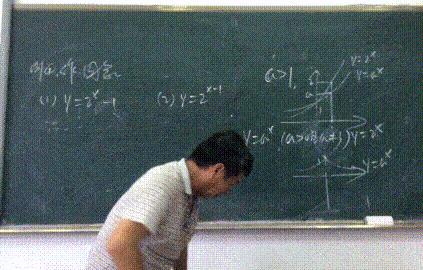 (1) y=2ˣ-1
(2) y=2ˣ⁻¹
a>1,
y=2ˣ
y=aˣ
y=aˣ (a>0且a≠1) y=2ˣ
y=aˣ